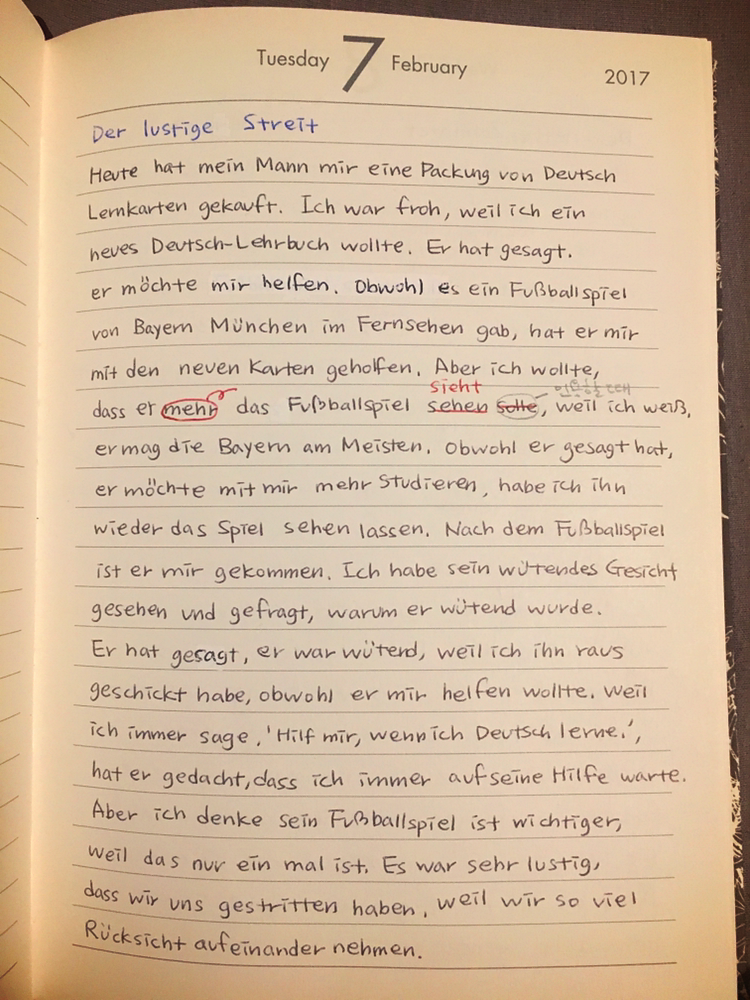 Tuesday 7 February 2017
Der lustige Streit
Heute hat mein Mann mir eine Packung von Deutsch
Lernkarten gekauft. Ich war froh, weil ich ein
neues Deutsch-Lehrbuch wollte. Er hat gesagt.
er möchte mir helfen. Obwohl es ein Fußballspiel
von Bayern München im Fernsehen gab, hat er mir
mit den neuen Karten geholfen. Aber ich wollte,
sieht 인용할 때
dass er mehr das Fußballspiel sehen solle, weil ich weiß,
er mag die Bayern am Meisten. Obwohl er gesagt hat,
er möchte mit mir mehr studieren, habe ich ihn
wieder das Spiel sehen lassen. Nach dem Fußballspiel
ist er mir gekommen. Ich habe sein wütendes Gesicht
gesehen und gefragt, warum er wütend wurde.
Er hat gesagt, er war wütend, weil ich ihn raus
geschickt habe, obwohl er mir helfen wollte. Weil
ich immer sage, 'Hilf mir, wenn ich Deutsch lerne.',
hat er gedacht, dass ich immer auf seine Hilfe warte.
Aber ich denke sein Fußballspiel ist wichtiger,
weil das nur ein mal ist. Es war sehr lustig,
dass wir uns gestritten haben, weil wir so viel
Rücksicht aufeinander nehmen.